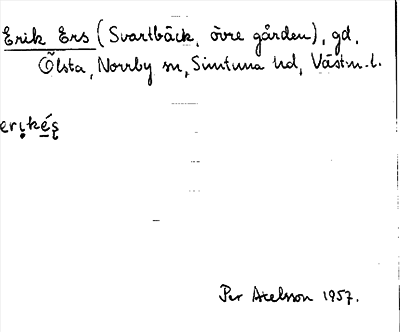 Erik Ers (Svartbäck, övre gården), gd,
Ölsta, Norrby sn, Simtuna hd, Västm. l.
erịkéş
Per Axelsson 1957.